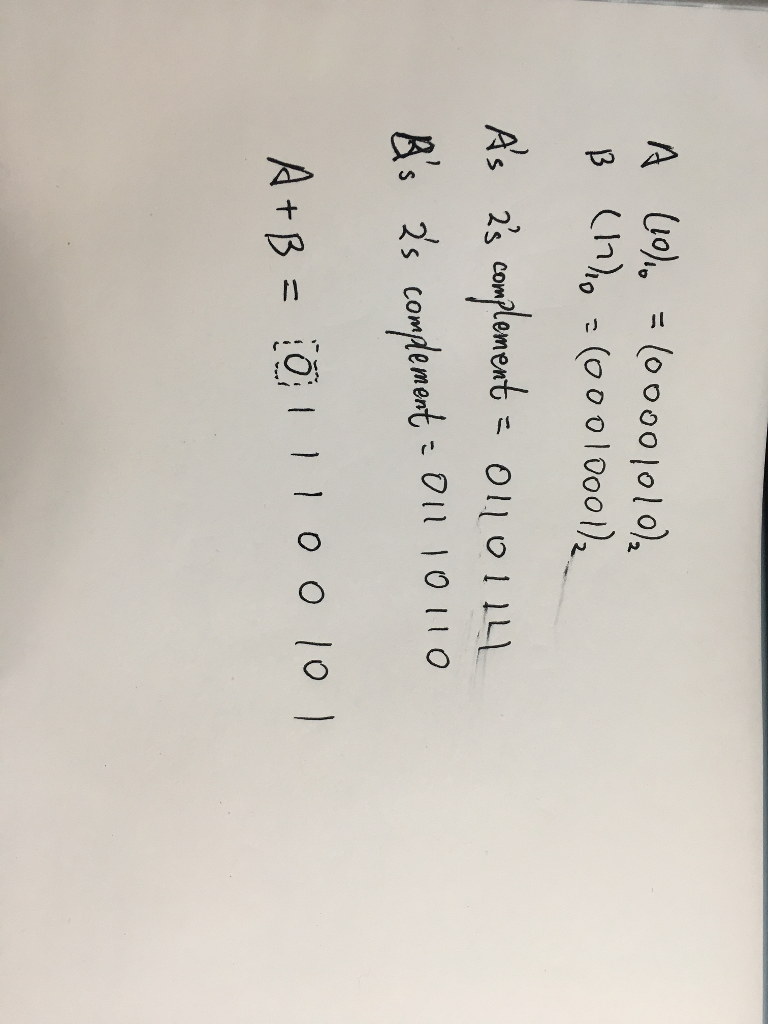 A (10)₁₀ = (00001010)₂
B (17)₁₀ = (00010001)₂
A's 2's complement = 01101111
B's 2's complement = 01110110
A+B = 011100101